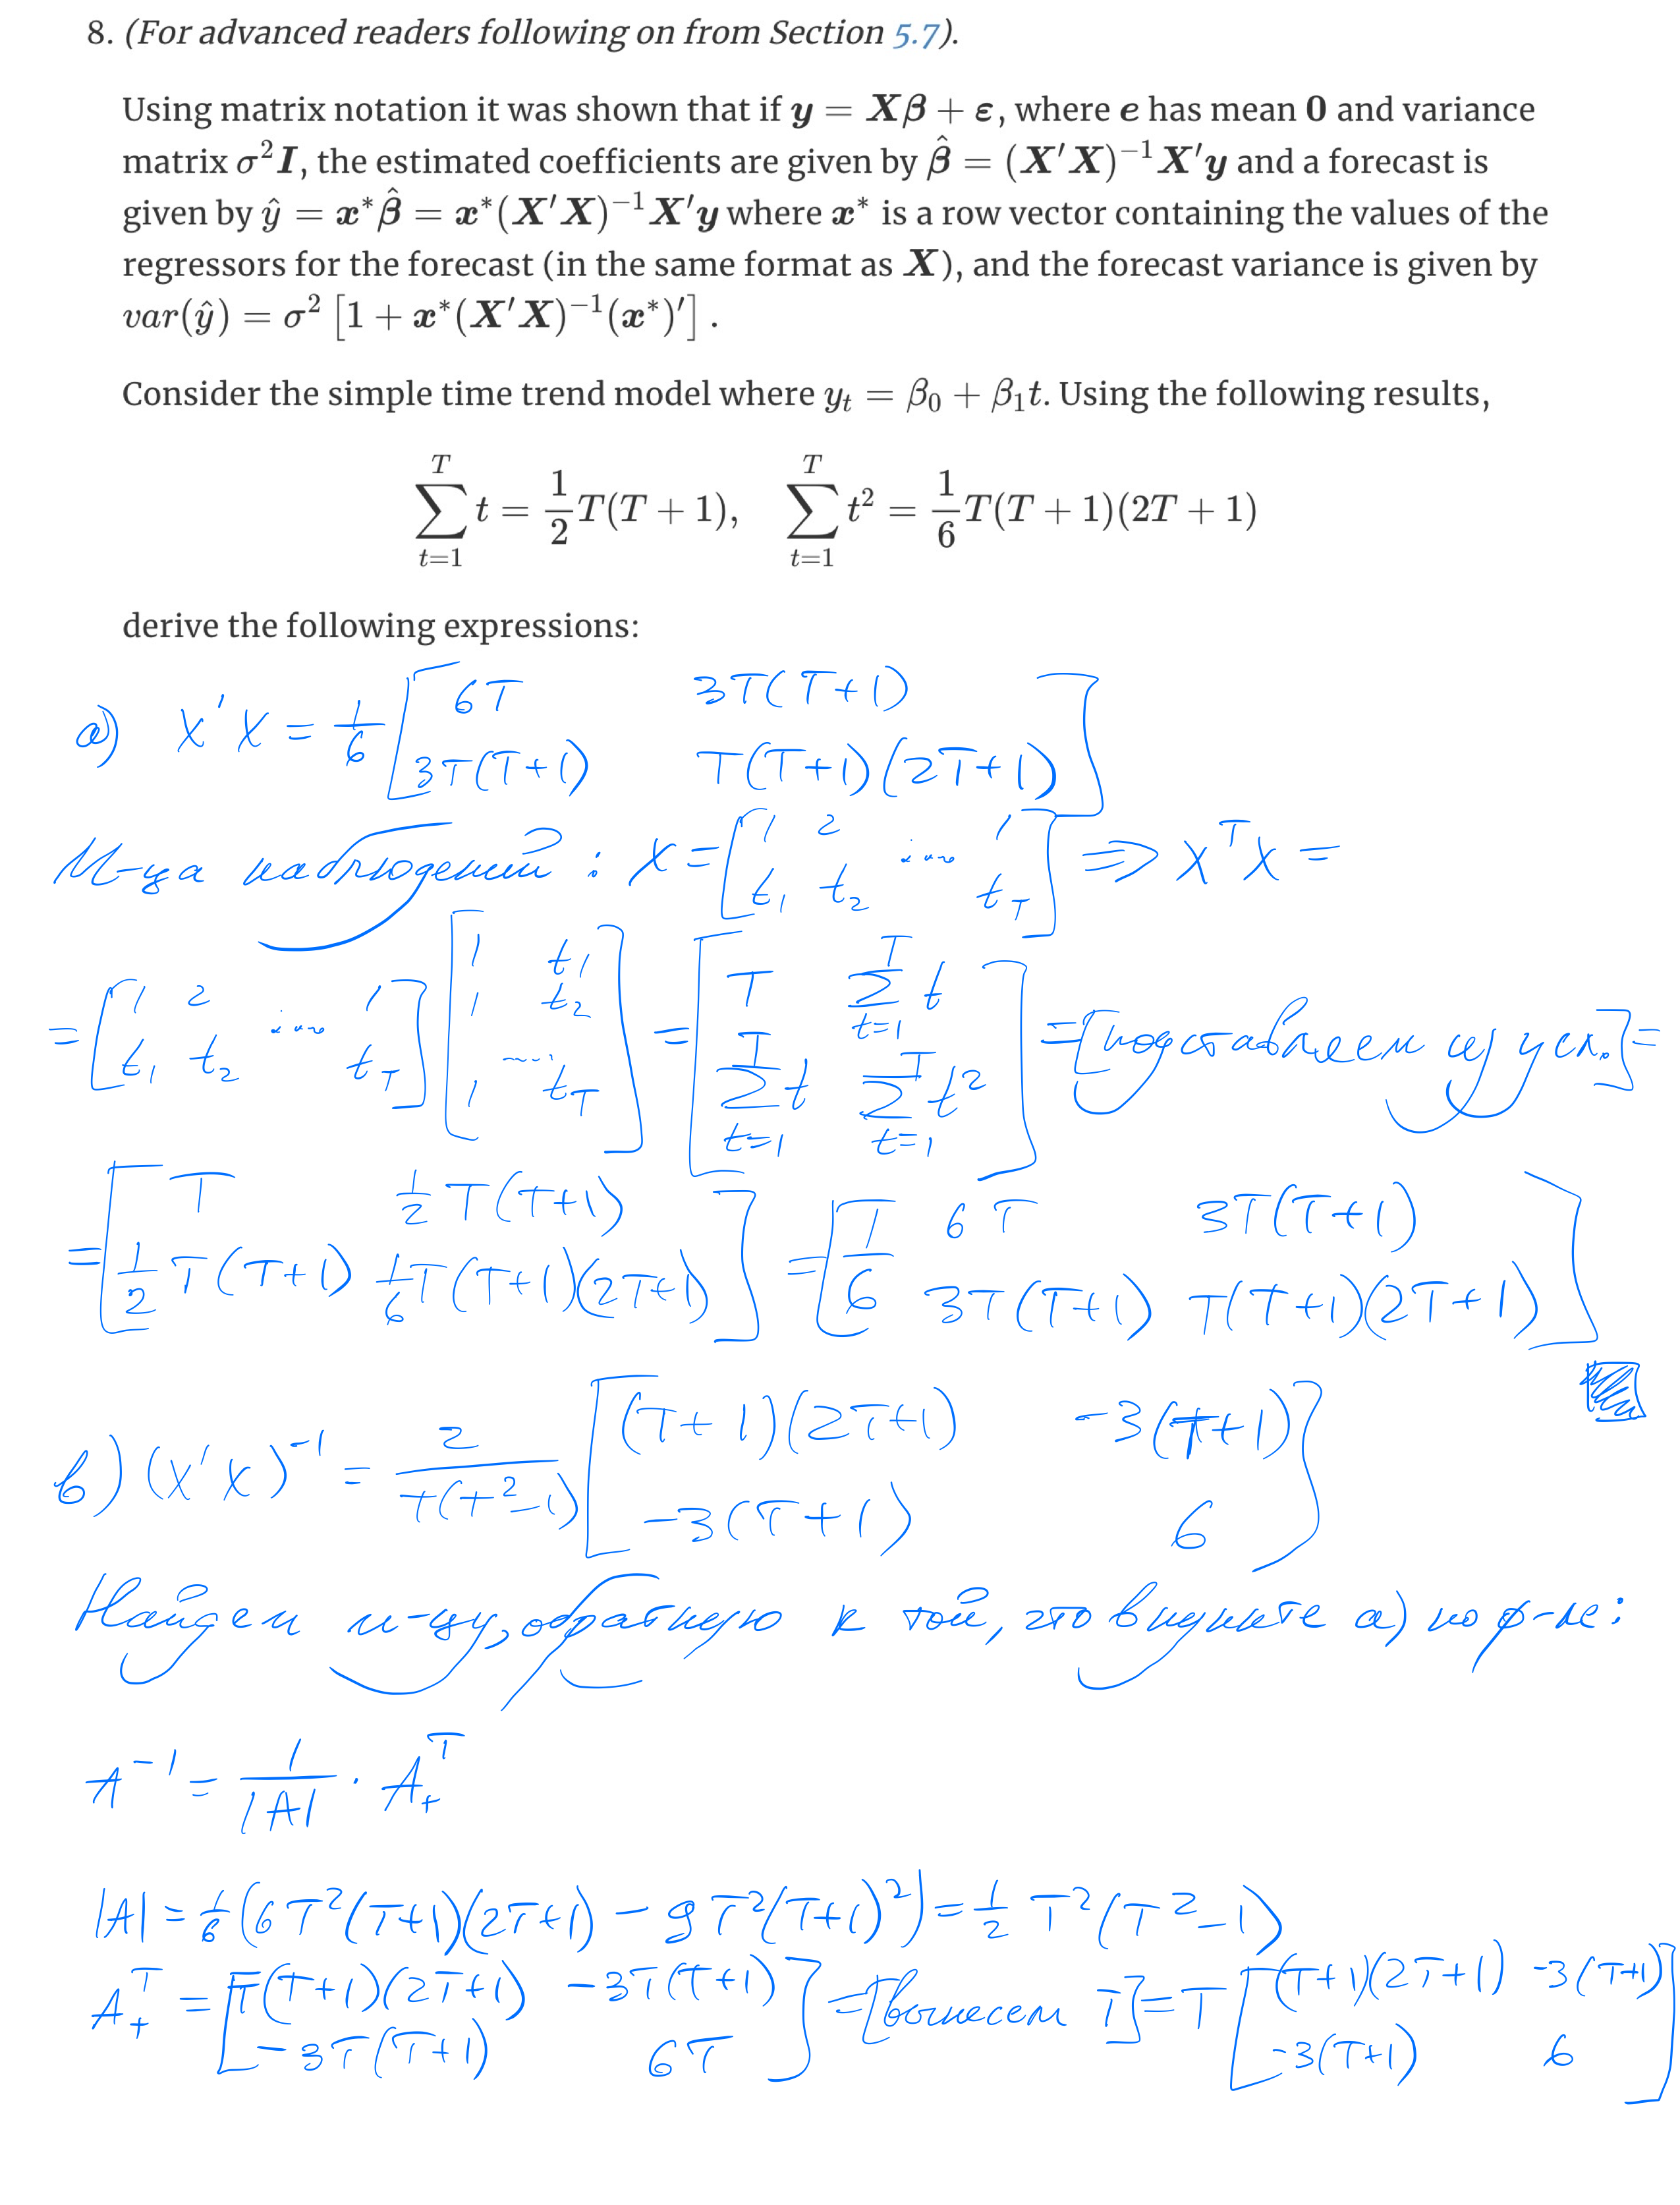 8. (For advanced readers following on from Section 5.7).
Using matrix notation it was shown that if y = Xβ + ε, where e has mean 0 and variance
matrix σ²I, the estimated coefficients are given by β̂ = (X′X)⁻¹X′y and a forecast is
given by ŷ = x*β̂ = x*(X′X)⁻¹X′y where x* is a row vector containing the values of the
regressors for the forecast (in the same format as X), and the forecast variance is given by
var(ŷ) = σ² [1 + x*(X′X)⁻¹(x*)′] .
Consider the simple time trend model where yₜ = β₀ + β₁t. Using the following results,
∑_{t=1}^{T} t = 1/2 T(T + 1), ∑_{t=1}^{T} t² = 1/6 T(T + 1)(2T + 1)
derive the following expressions:
a) X'X = 1/6 [6T 3T(T+1); 3T(T+1) T(T+1)(2T+1)]
М-ца наблюдений: X = [1 2 ... 1; t₁ t₂ t_T] => XᵀX =
= [1 2 ... 1; t₁ t₂ ... t_T] [1 t₁; 1 t₂; ...; 1 t_T] = [T ∑_{t=1}^{T} t; ∑_{t=1}^{T} t ∑_{t=1}^{T} t²] = [подставляем из усл.] =
= [T 1/2 T(T+1); 1/2 T(T+1) 1/6 T(T+1)(2T+1)] = [1/6 6T 3T(T+1); 3T(T+1) T(T+1)(2T+1)]
b) (X'X)⁻¹ = 2/(T(T²-1)) [(T+1)(2T+1) -3(T+1); -3(T+1) 6]
Найдем м-цу, обратную к той, что в пункте a) по ф-ле:
A⁻¹ = 1/|A| · A₊ᵀ
|A| = 1/6 (6T²(T+1)(2T+1) - 9T²(T+1)²) = 1/2 T²(T²-1)
A₊ᵀ = [T(T+1)(2T+1) -3T(T+1); -3T(T+1) 6T] = [вынесем T] = T [(T+1)(2T+1) -3(T+1); -3(T+1) 6]